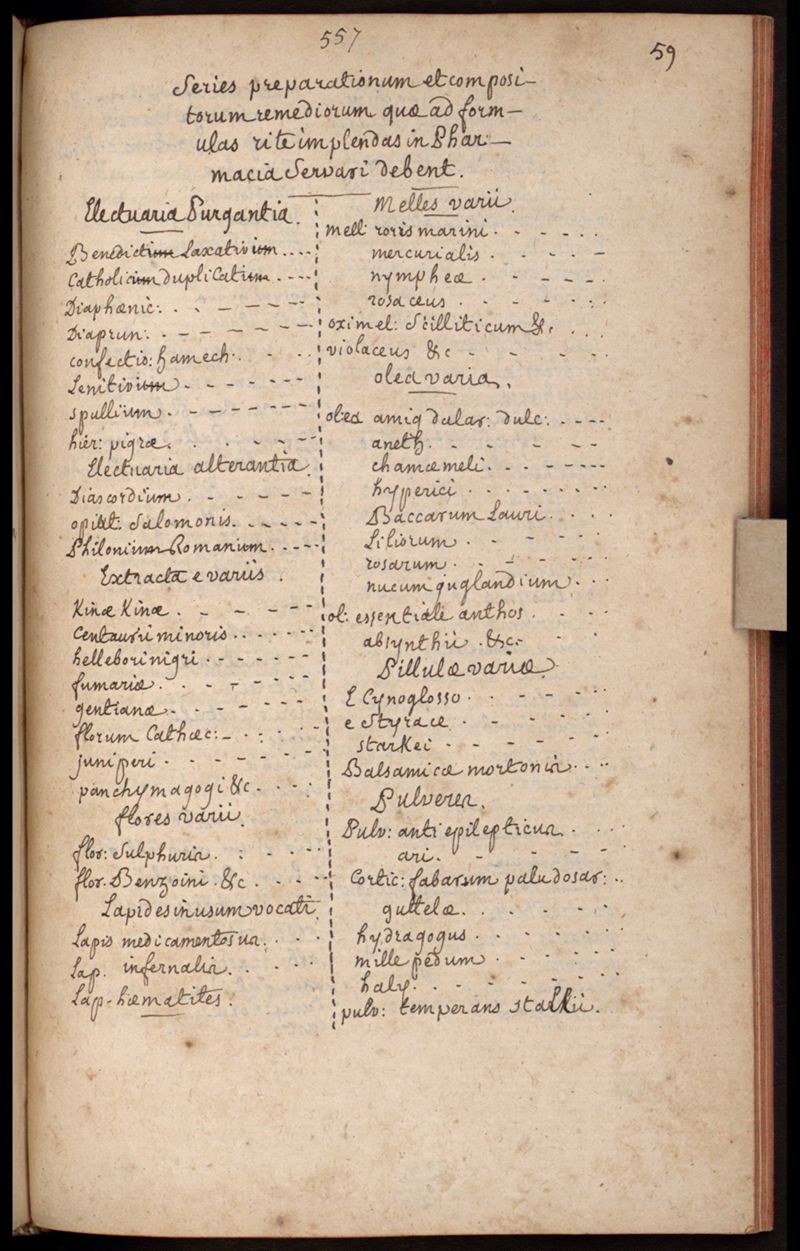 557
59
Series preparationum et composi-
torum remediorum quæ ad form-
ulas rite implendas in Phar-
macia Servari debent.
Electuaria Purgantia.
Benedictum Laxativum....
Catholicum duplicatum....
Diaphœnic:.
Diaprun:.
confectio: hamech.
Lenitivum
psyllium.
hier: pigræ.
Electuaria alterantia.
Diascordium.
opiat: Salomonis.
Philonium Romanum.
Extracta e variis.
Kinæ Kinæ.
Centaurii minoris..
hellebori nigri.
fumariæ.
gentianæ.
florum Cathæc:
juniperi.
panchymagogi &c.
flores varii.
flor: Sulphuris.
flor. Benzoini. &c.
Lapides in usum vocati.
Lapis medicamentosus.
Lap. infernalis.
Lap. hæmatites.
Melles varii.
mell: roris marini.
mercurialis.
nympheæ.
rosaceus.
oximel: Scilliticum &c.
violaceus &c
olea varia.
olea amigdalar: dulc:.
aneth.
chamæmeli.
hyperici.
Baccarum Lauri.
Liliorum
rosarum.
nucum juglandium.
ol: essentiale anthos.
absynthii. &c.
Pillulæ variæ.
E Cynoglosso.
e Styrace.
starkei
Balsamicæ mortonis.
Pulveres.
Pulv: anti epilepticus.
ari.
Cortic: fabarum paludosar:..
guttetæ.
hydragogus.
mille pedum.
haly.
pulv: temperans stalhii.